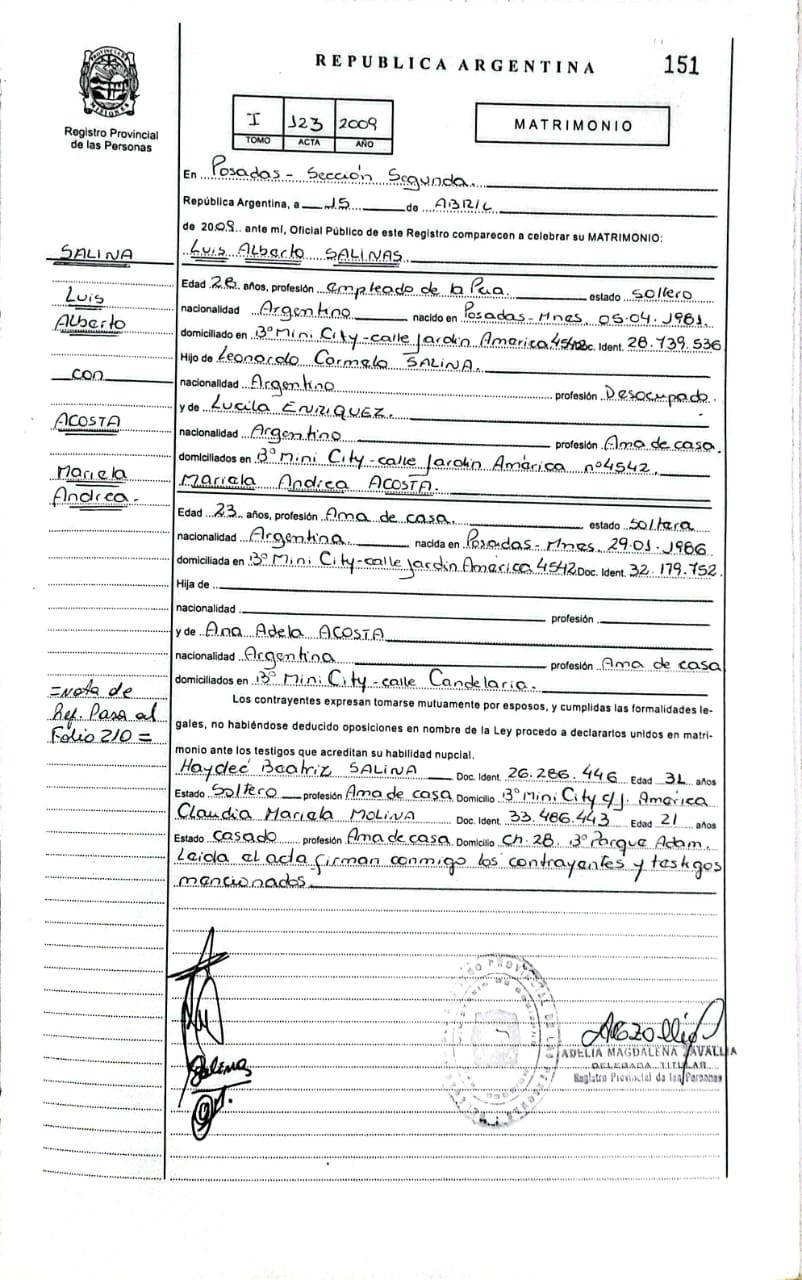 REPUBLICA ARGENTINA 151
PROVINCIA DE MISIONES
Registro Provincial
de las Personas
I 123 2009
TOMO ACTA AÑO
MATRIMONIO
En Posadas - Sección Segunda.
República Argentina, a 15 de ABRIL
de 2009. ante mí, Oficial Público de este Registro comparecen a celebrar su MATRIMONIO:
Luis Alberto SALINAS
Edad 28 años, profesión empleado de la Pcia. estado soltero
nacionalidad Argentino nacido en Posadas - Mnes, 05.04.1981.
domiciliado en B° Mini City - calle Jardin America 4542 Doc. Ident. 28.739.536
Hijo de Leonardo Carmelo SALINA.
nacionalidad Argentino profesión Desocupado.
y de Lucila ENRIQUEZ.
nacionalidad Argentino profesión Ama de casa.
domiciliados en B° Mini City - calle Jardin América n° 4542.
Mariela Andrea ACOSTA.
Edad 23 años, profesión Ama de casa. estado soltera
nacionalidad Argentina nacida en Posadas - Mnes, 29.01.1986
domiciliada en B° Mini City - calle Jardin América 4542 Doc. Ident. 32.179.752
Hija de
nacionalidad profesión
y de Ana Adela ACOSTA
nacionalidad Argentina profesión Ama de casa
domiciliados en B° Mini City - calle Candelaria.
Los contrayentes expresan tomarse mutuamente por esposos, y cumplidas las formalidades le-
gales, no habiéndose deducido oposiciones en nombre de la Ley procedo a declararlos unidos en matri-
monio ante los testigos que acreditan su habilidad nupcial.
Haydeé Beatriz SALINA Doc. Ident. 26.286.446 Edad 31 años
Estado Soltero profesión Ama de casa Domicilio B° Mini City c/J. América
Claudia Mariela MOLINA Doc. Ident. 33.486.443 Edad 21 años
Estado casado profesión Ama de casa Domicilio Ch. 28. B° Parque Adam.
Leida el acta firman conmigo los contrayentes y testigos
mencionados.
SALINA
Luis
Alberto
con
ACOSTA
Mariela
Andrea.
=Nota de
Ref. Pasa al
Folio 210=
Salina
ADELIA MAGDALENA ZAVALLIA
DELEGADA TITULAR
Registro Provincial de las Personas